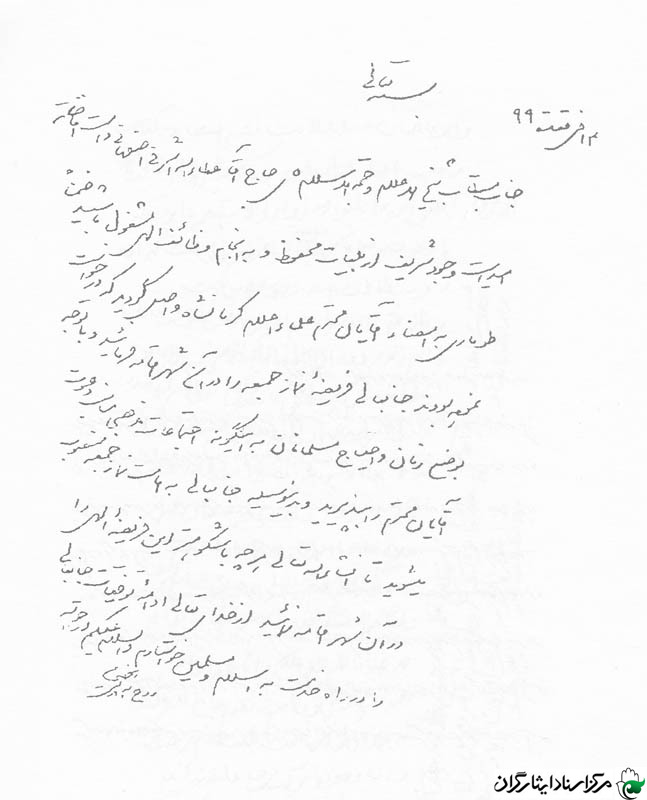 بسمه تعالی
۲۰ ذی قعده ۹۹
جناب مستطاب شیخ الاعلام و حجة الاسلام آقای حاج آقا عطاءالله اشرفی اصفهانی دامت افاضاته
امید است وجود شریف از بلیات محفوظ و به انجام وظائف الهی مشغول باشید ضمناً
طوماری به امضاء آقایان محترم علماء اعلام کرمانشاه واصل گردید که درخواست
نموده بودند جنابعالی فریضه نماز جمعه را در آن شهر اقامه فرمائید و با توجه
بوضع زمان و احتیاج مسلمانان به اینگونه اجتماعات مذهبی دعوت
آقایان محترم را بپذیرید و بدینوسیله جنابعالی به امامت نماز جمعه منصوب
میشوید تا انشاءالله تعالی هرچه باشکوهتر این فریضه الهی را
در آن شهر اقامه نمائید از خدای تعالی ادامه توفیقات جنابعالی
را در راه خدمت به اسلام و مسلمین خواستارم والسلام علیکم ورحمة الله
روح الله الموسوی الخمینی
مرکز اسناد ایثارگران